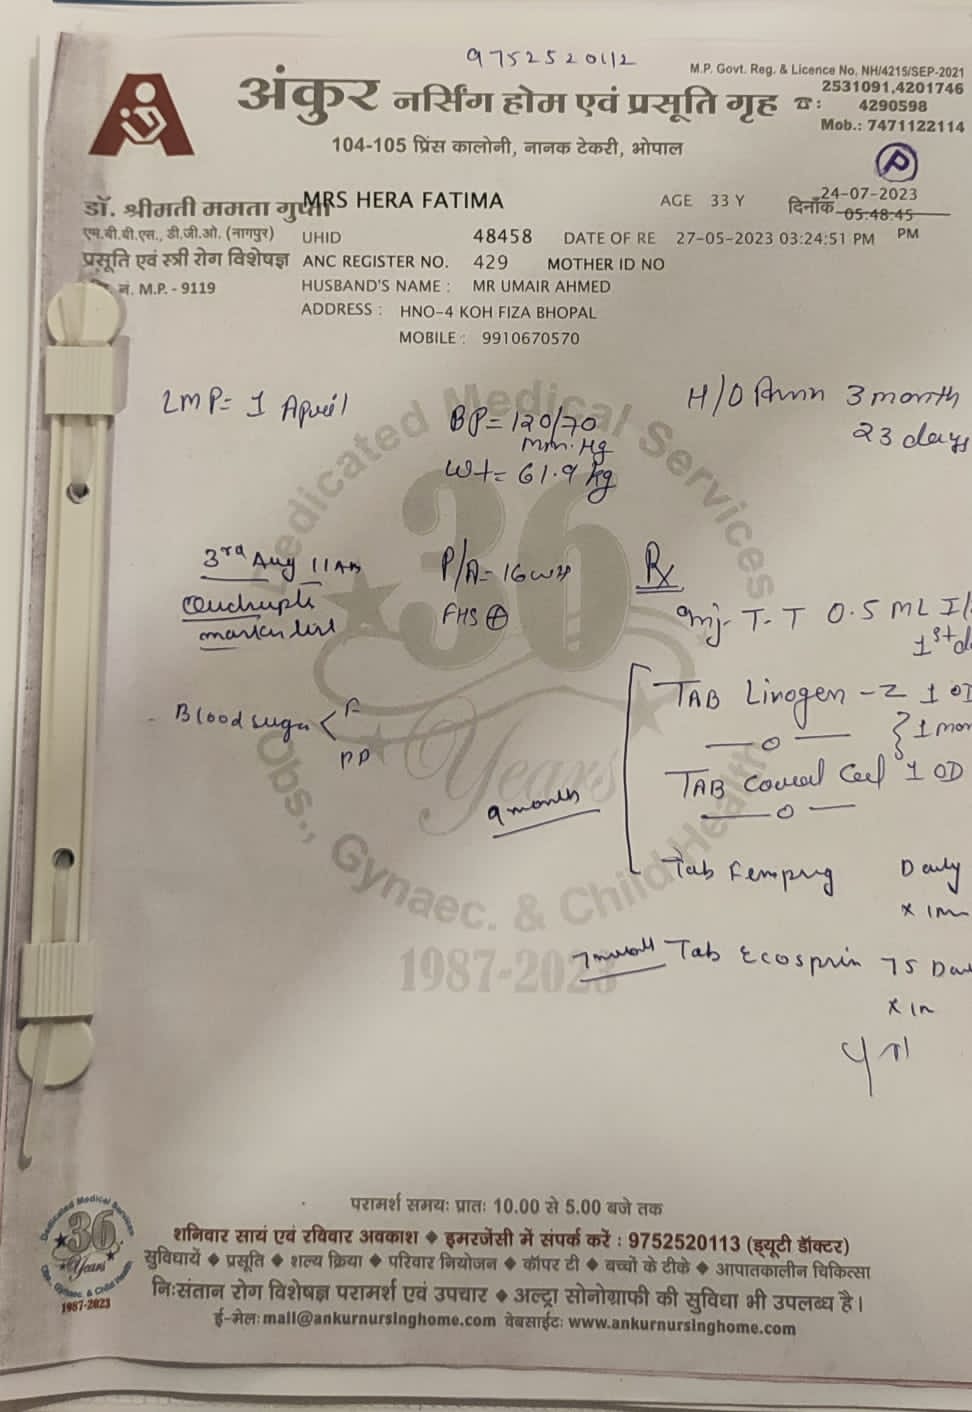 9752520112
M.P. Govt. Reg. & Licence No. NH/4215/SEP-2021
अंकुर नर्सिंग होम एवं प्रसूति गृह ☎: 2531091,4201746
4290598
Mob.: 7471122114
104-105 प्रिंस कालोनी, नानक टेकरी, भोपाल
P
डॉ. श्रीमती ममता गुप्ता
MRS HERA FATIMA AGE 33 Y दिनाँक 24-07-2023
05:48:45 PM
एम.बी.बी.एस., डी.जी.ओ. (नागपुर)
UHID 48458 DATE OF RE 27-05-2023 03:24:51 PM
प्रसूति एवं स्त्री रोग विशेषज्ञ
ANC REGISTER NO. 429 MOTHER ID NO
नं. M.P. - 9119
HUSBAND'S NAME : MR UMAIR AHMED
ADDRESS : HNO-4 KOH FIZA BHOPAL
MOBILE : 9910670570
LMP= 1 April
BP= 120/70
mm.Hg
Wt= 61.9 kg
H/O 3 month
23 days
3rd Aug 11 AM
Quadruple
marker
P/A- 16
FHS ⊕
Rx
Inj- T.T 0.5 ML
1st
Blood sugar < F
PP
TAB Linogen -Z 1
} 1
TAB 1 OD
9 month
Tab Daily
Tab Ecosprin 75
Dedicated Medical Services
36
Years
Obs., Gynaec. & Child Health
1987-2023
परामर्श समयः प्रातः 10.00 से 5.00 बजे तक
शनिवार सायं एवं रविवार अवकाश ◆ इमरजेंसी में संपर्क करें : 9752520113 (ड्यूटी डॉक्टर)
सुविधायें ◆ प्रसूति ◆ शल्य क्रिया ◆ परिवार नियोजन ◆ कॉपर टी ◆ बच्चों के टीके ◆ आपातकालीन चिकित्सा
निःसंतान रोग विशेषज्ञ परामर्श एवं उपचार ◆ अल्ट्रा सोनोग्राफी की सुविधा भी उपलब्ध है।
ई-मेलः mail@ankurnursinghome.com वेबसाईटः www.ankurnursinghome.com
Dedicated Medical Services
36
Years
Obs., Gynaec. & Child Health
1987-2023